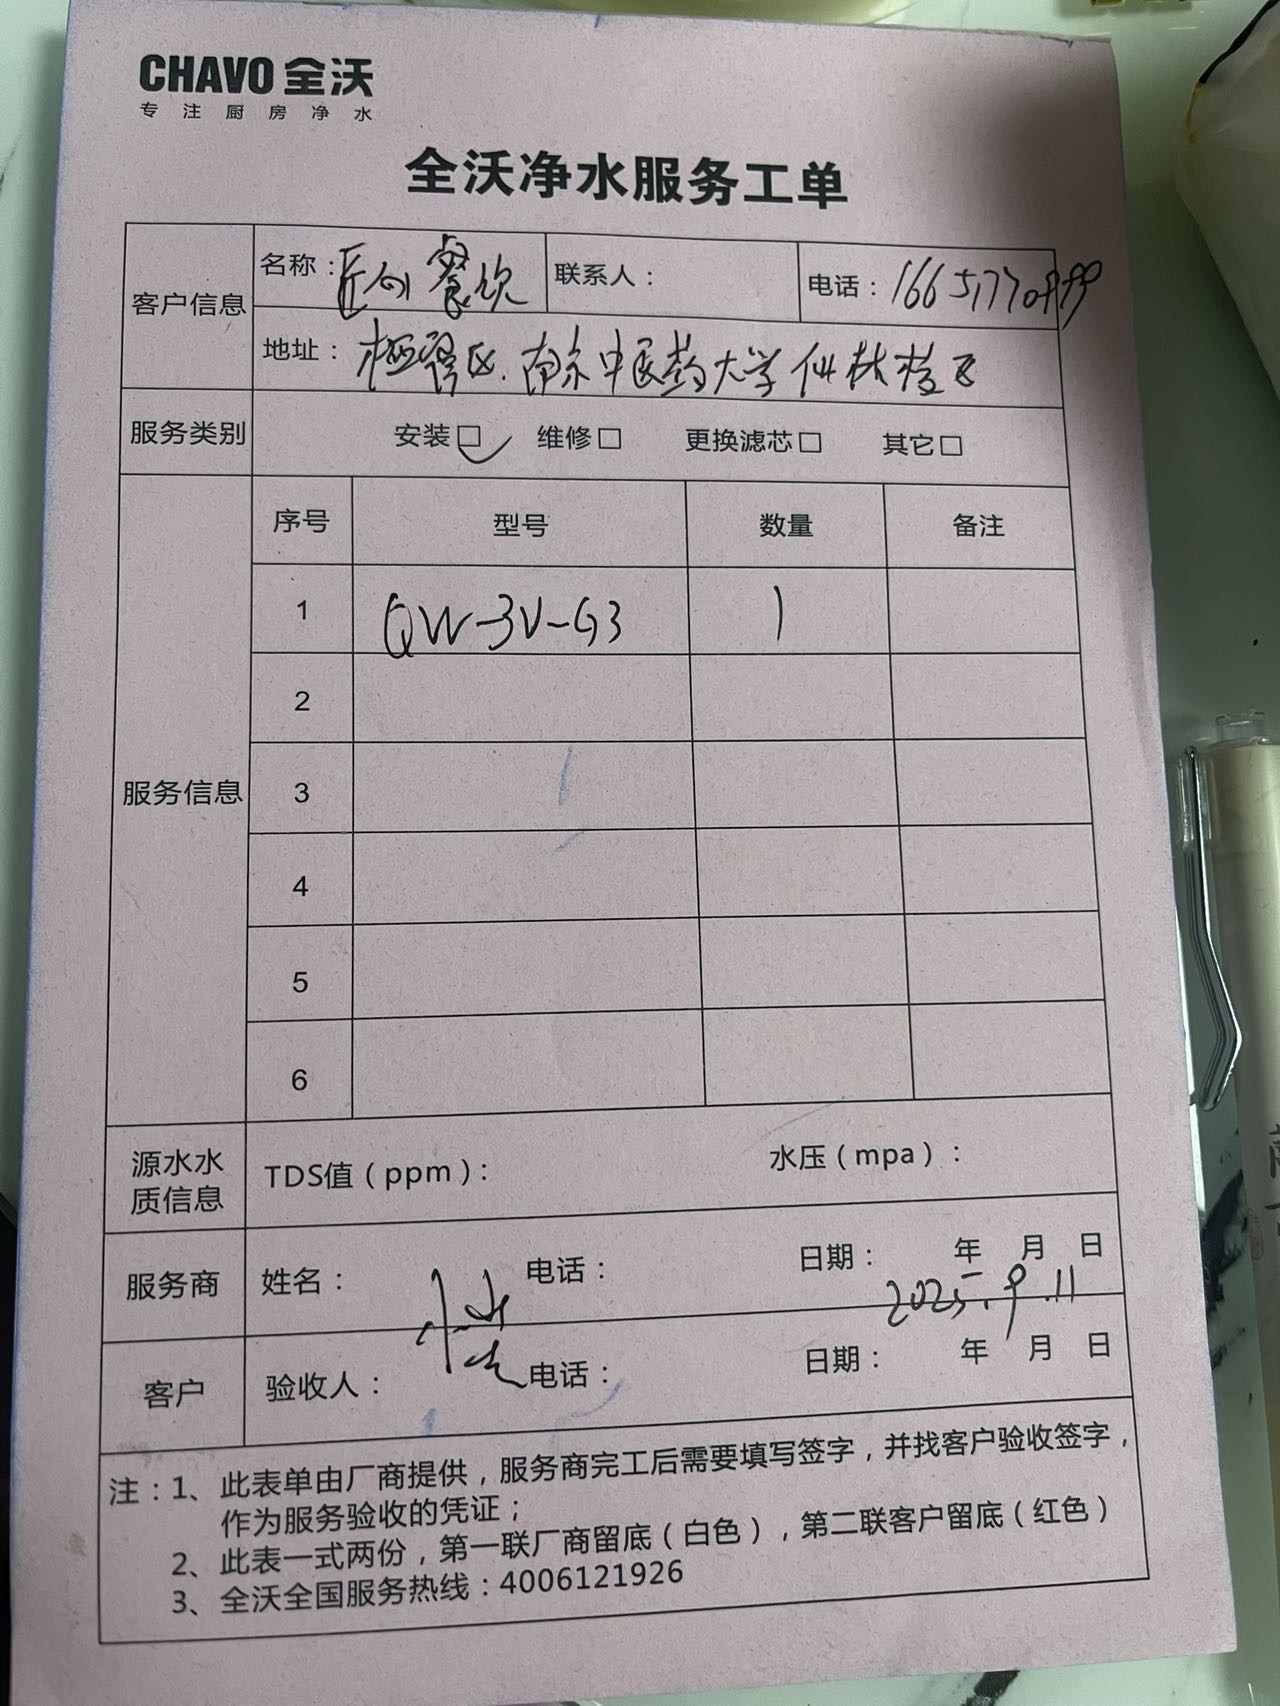 CHAVO 全沃
专注厨房净水
全沃净水服务工单
客户信息
名称：匠心餐饮
联系人：
电话：
地址：栖霞区.南京中医药大学仙林校区
服务类别
安装□ 维修□ 更换滤芯□ 其它□
服务信息
序号 型号 数量 备注
1 QW-3V-G3 1
2
3
4
5
6
源水水质信息
TDS值（ppm）： 水压（mpa）：
服务商 姓名： 电话： 日期： 年 月 日
2025.9.11
客户 验收人： 电话： 日期： 年 月 日
注：1、此表单由厂商提供，服务商完工后需要填写签字，并找客户验收签字，
作为服务验收的凭证；
2、此表一式两份，第一联厂商留底（白色），第二联客户留底（红色）
3、全沃全国服务热线：4006121926